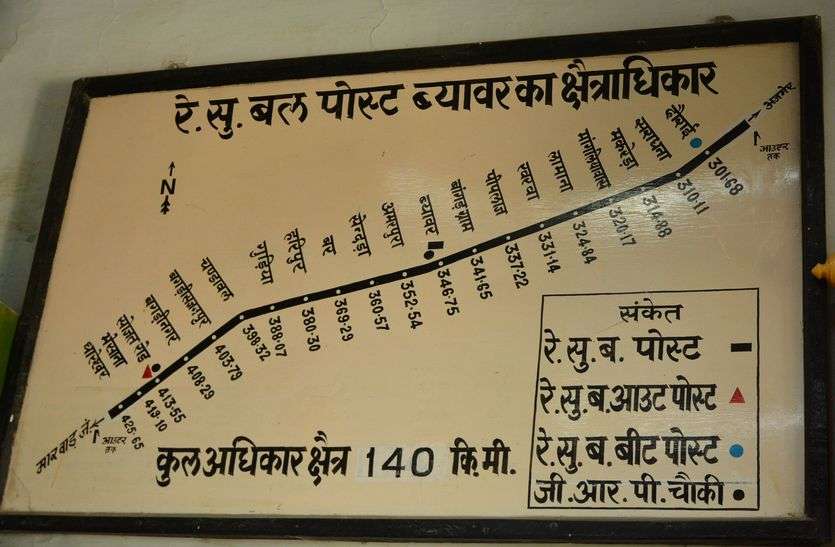 रे.सु.बल पोस्ट ब्यावर का क्षैत्राधिकार
←N
अजमेर
आउटर
तक
दौराई
सराधना
मकरेड़ा
मांगलियावास
लामाना
खरवा
पीपलाज
बांगड़ ग्राम
ब्यावर
अमरपुरा
सेन्दड़ा
बर
हरिपुर
गुड़िया
चण्डावल
बगड़ीनगर
सोजत रोड
301·68
310·11
314·88
320·17
324·84
331·14
337·22
341·65
346·75
352·54
360·57
369·29
380·30
389·07
398·32
403·79
408·29
413·55
419·10
425·65
मारवाड़ जं.
आउटर
तक
कुल अधिकार क्षैत्र 140 कि.मी.
संकेत
रे.सु.ब. पोस्ट
रे.सु.ब.आउट पोस्ट
रे.सु.ब.बीट पोस्ट
जी.आर.पी.चौकी